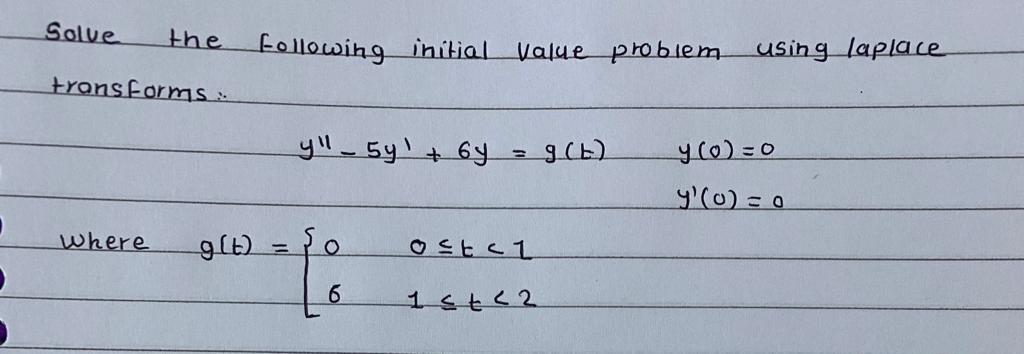 Solve the following initial value problem using laplace
transforms:
y'' - 5y' + 6y = g(t) y(0) = 0
y'(0) = 0
where g(t) = { 0 0 ≤ t < 1
6 1 ≤ t < 2